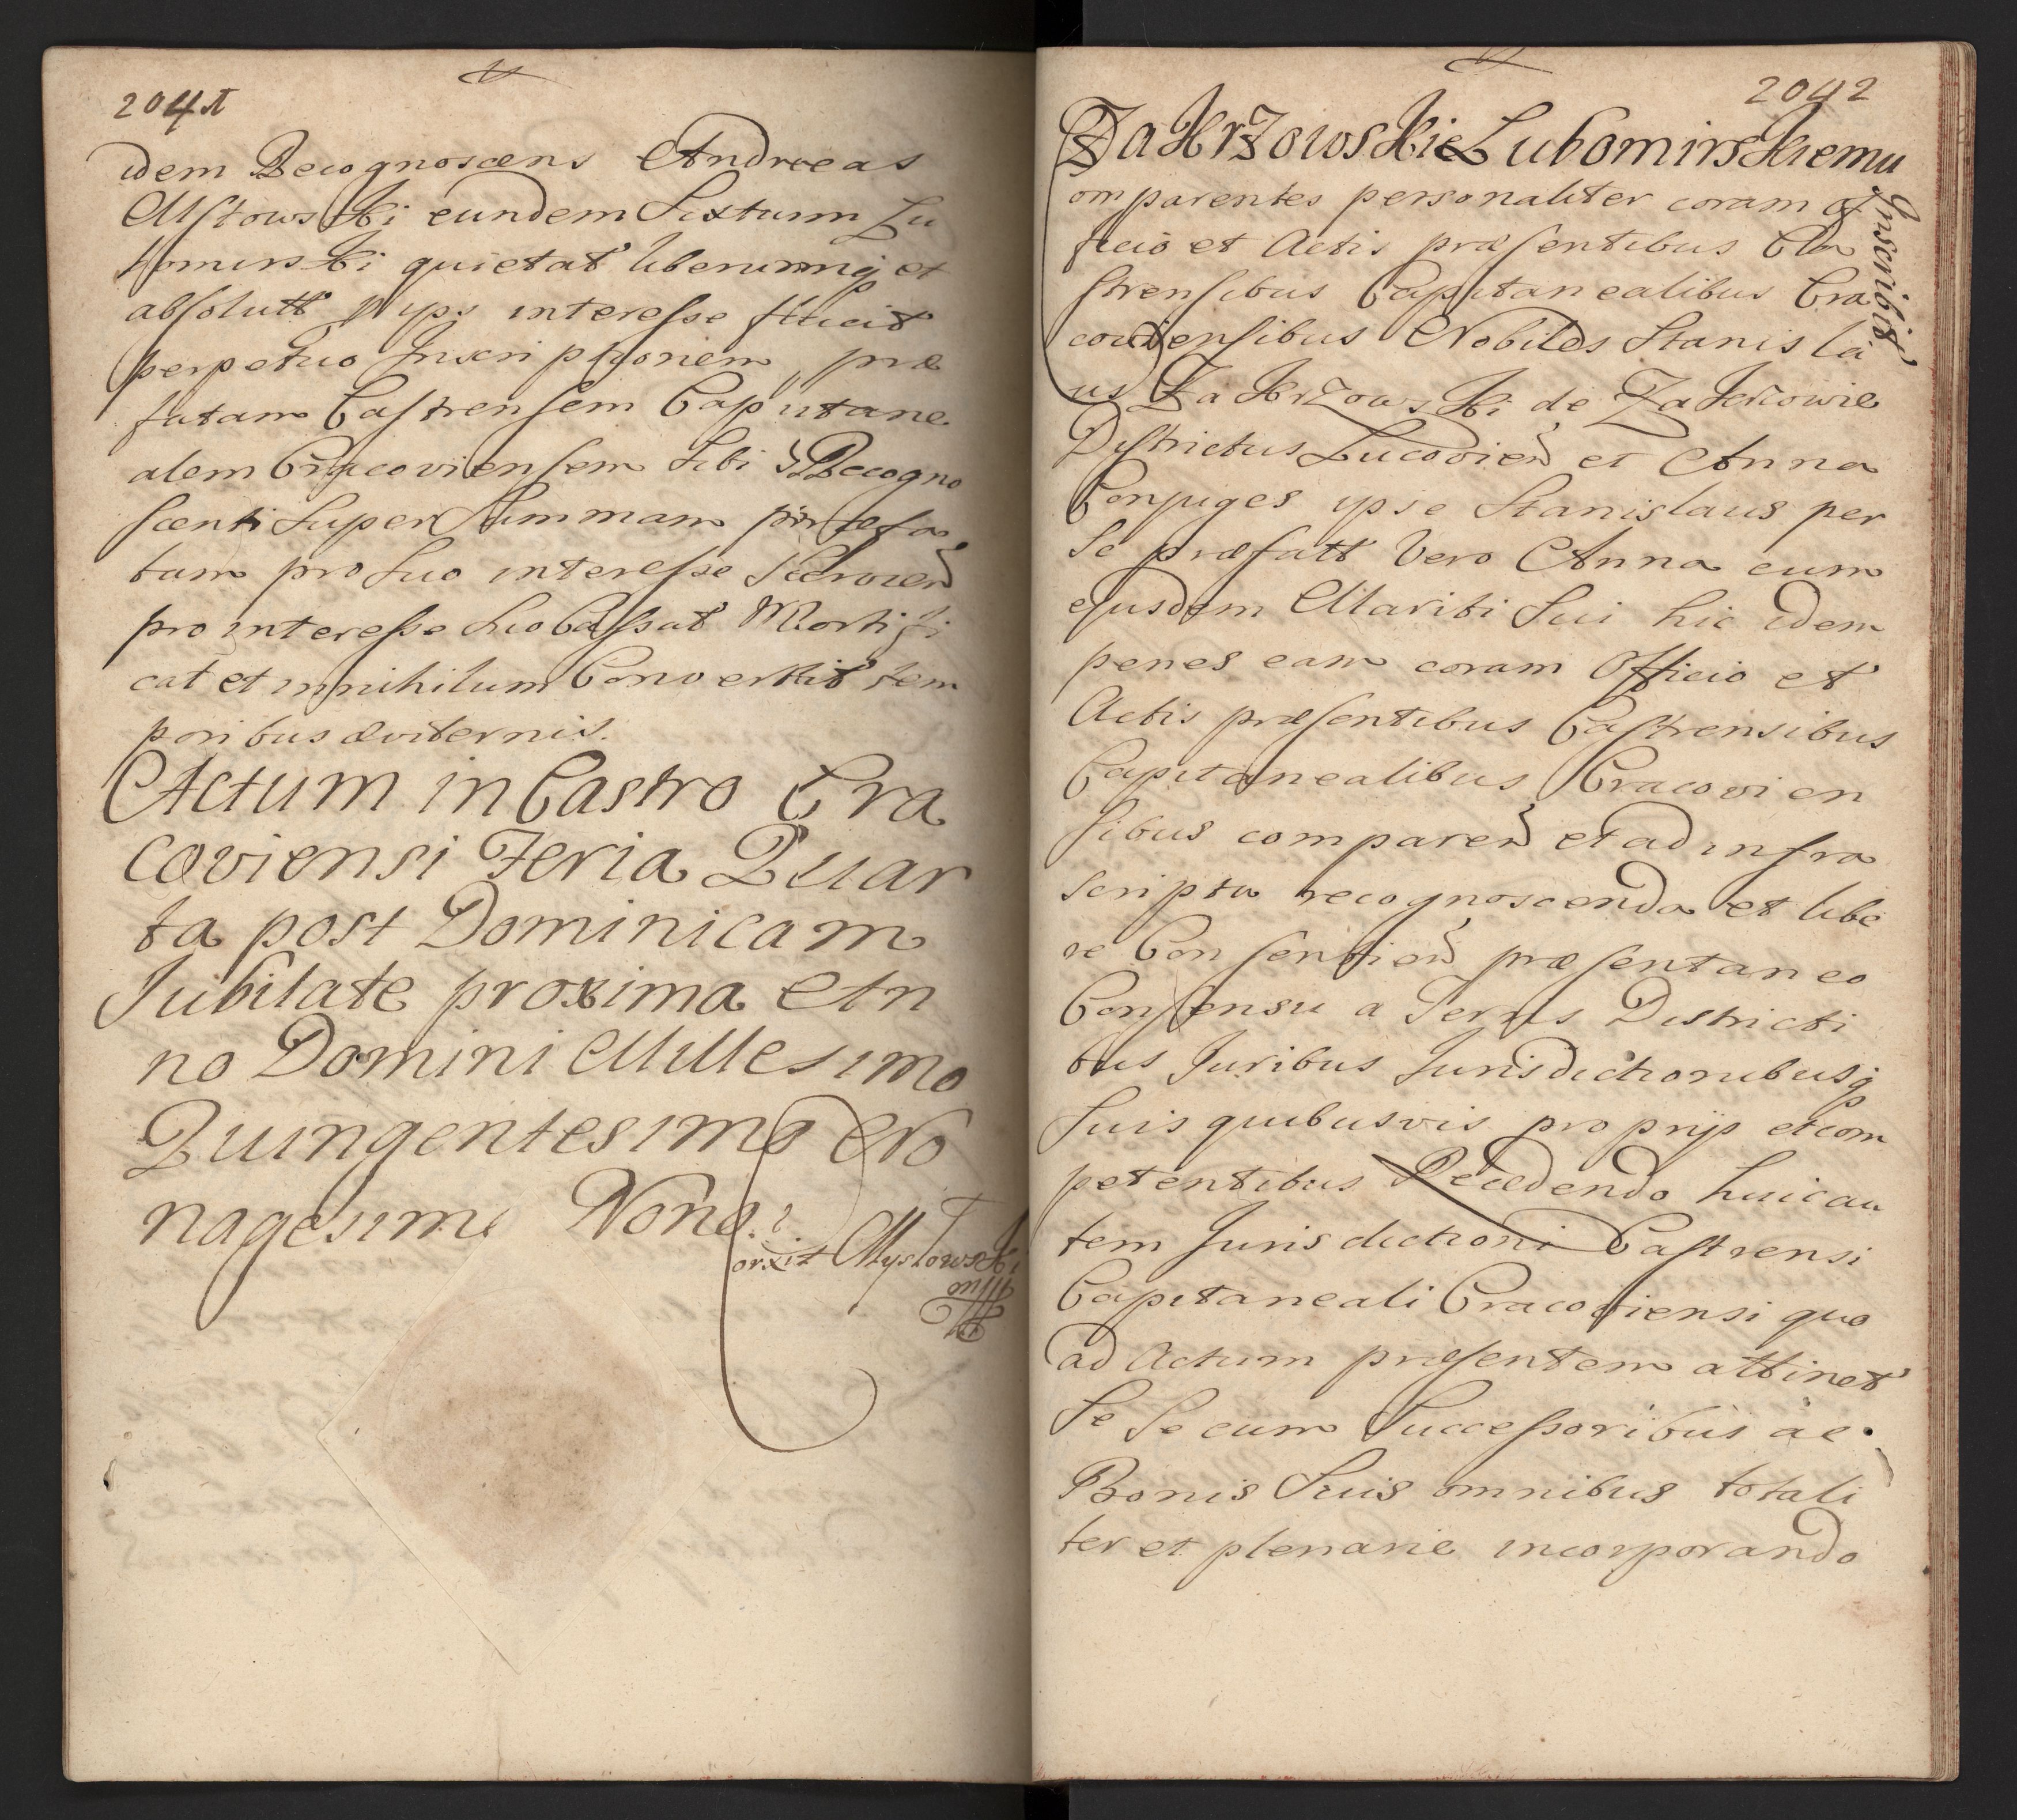 2041
idem Recognoscens Andreas
Mstowski eundem Sixtum Lu
bomirski quietat liberumq et
absolutt ipsi interesse facit
perpetuo Inscriptionem, præ
fatam Castrensem Capitane
alem Cracoviensem Sibi Recogno
scenti Super Summam præfa
tam pro Suo interesse Servien
pro interesse Suo Cassat Mortifi
cat et in nihilum Convertit tem
poribus æviternis.
Actum in Castro Cra
coviensi Feria Quar
ta post Dominicam
Jubilate proxima An
no Domini Millesimo
Quingentesimo No
nagesimo Nono.
orxit Mysłowski
mpp
2042
Zakrzowskie Lubomirskiemu
Inscribit
omparentes personaliter coram of
ficio et Actis præsentibus Ca
strensibus Capitanealibus Cra
coviensibus Nobiles Stanisla
us Zakrzowski de Zakrzowie
Districtus Lucovien et Anna
Conjuges ipse Stanislaus per
Se præfatt Vero Anna cum
ejusdem Mariti Sui hic idem
penes eam coram Officio et
Actis præsentibus Castrensibus
Capitanealibus Cracovien
sibus comparen et ad infra
scripta recognoscenda et libe
re Consentien præsentaneo
Consensu a Terris Districti
bus Juribus Jurisdictionibusq
Suis quibusvis proprijs et com
petentibus Recedendo huic au
tem Jurisdictioni Castrensi
Capitaneali Cracoviensi quo
ad Actum præsentem attinet
Se Se cum Successoribus ac
Bonis Suis omnibus totali
ter et plenarie incorporando